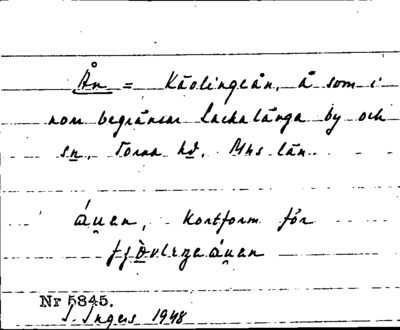 Ån = Käolingeån, å som i
norr begränsar Lackalänga by och
sn, Torna hd, Mhs län.
áu̯en, kortform för
Nr 5845.
I. Ingers 1948